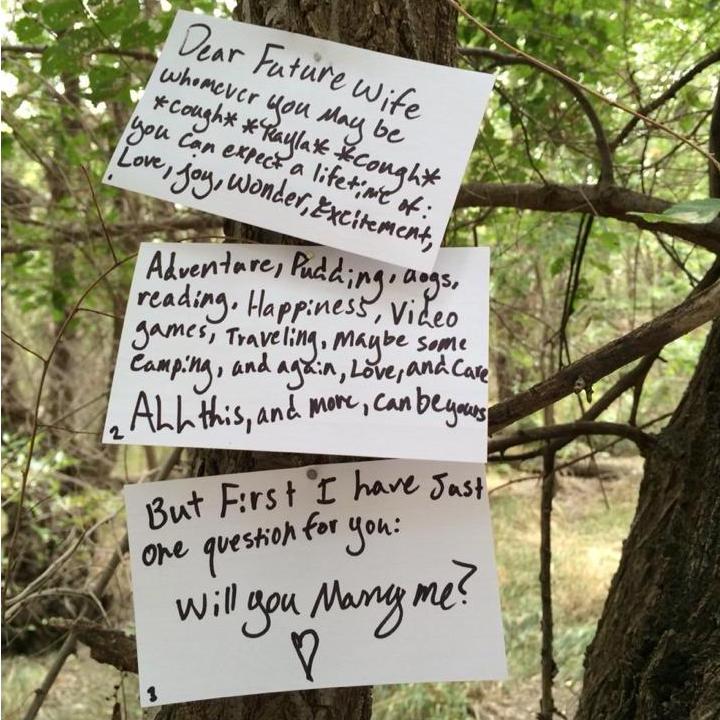 Dear Future Wife
whomever you may be
*cough* *Kayla* *cough*
you can expect a lifetime of:
Love, joy, wonder, Excitement,
Adventure, Pudding, dogs,
reading, Happiness, Video
games, Traveling, maybe some
camping, and again, Love, and Care
2 ALL this, and more, can be yours
But First I have Just
one question for you:
Will you Marry me?
♡
3